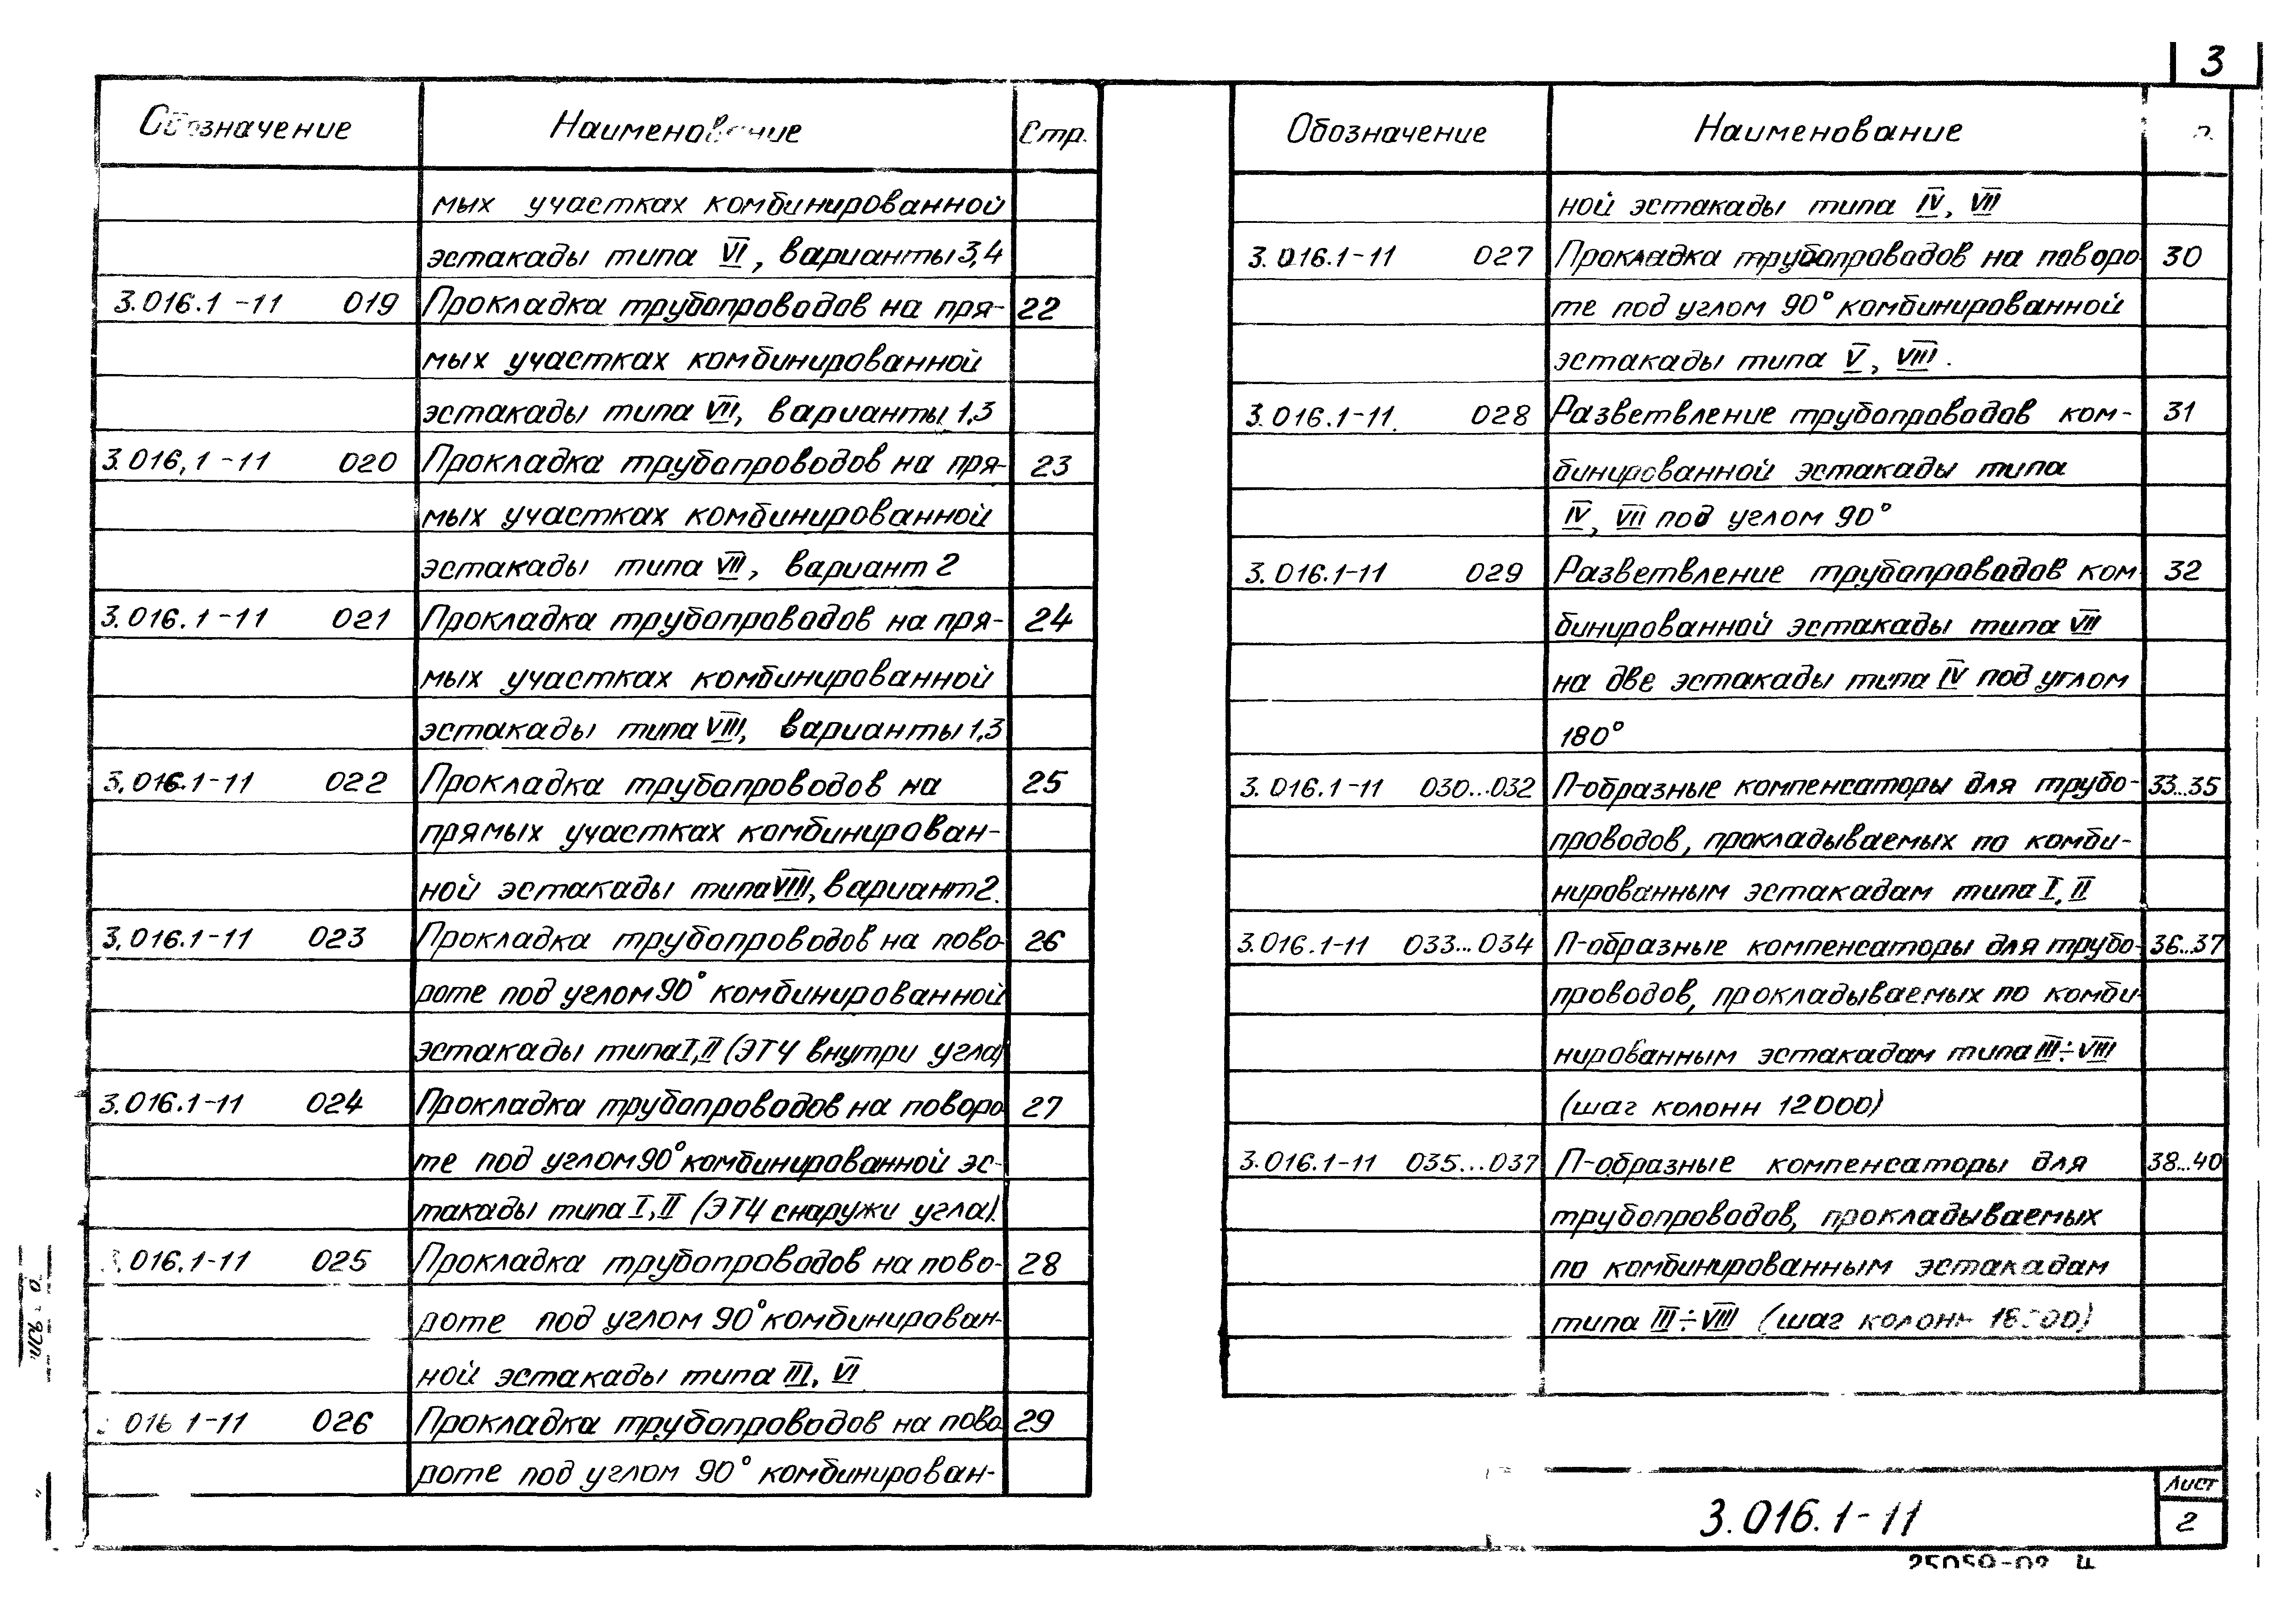 3
Обозначение Наименование Стр.
мых участках комбинированной
эстакады типа VI, варианты 3,4
3.016.1-11 019 Прокладка трубопроводов на пря- 22
мых участках комбинированной
эстакады типа VII, варианты 1,3
3.016.1-11 020 Прокладка трубопроводов на пря- 23
мых участках комбинированной
эстакады типа VII, вариант 2
3.016.1-11 021 Прокладка трубопроводов на пря- 24
мых участках комбинированной
эстакады типа VIII, варианты 1,3
3.016.1-11 022 Прокладка трубопроводов на 25
прямых участках комбинирован-
ной эстакады типа VIII, вариант 2.
3.016.1-11 023 Прокладка трубопроводов на пово- 26
роте под углом 90° комбинированной
эстакады типа I, II (ЭТЧ внутри угла)
3.016.1-11 024 Прокладка трубопроводов на поворо 27
те под углом 90° комбинированной эс-
такады типа I, II (ЭТЧ снаружи угла).
3.016.1-11 025 Прокладка трубопроводов на пово- 28
роте под углом 90° комбинирован-
ной эстакады типа III, VI
016 1-11 026 Прокладка трубопроводов на пово 29
роте под углом 90° комбинирован-
Обозначение Наименование
ной эстакады типа IV, VII
3.016.1-11 027 Прокладка трубопроводов на поворо 30
те под углом 90° комбинированной
эстакады типа V, VIII.
3.016.1-11. 028 Разветвление трубопроводов ком- 31
бинированной эстакады типа
IV, VII под углом 90°
3.016.1-11 029 Разветвление трубопроводов ком 32
бинированной эстакады типа VII
на две эстакады типа IV под углом
180°
3.016.1-11 030...032 П-образные компенсаторы для трубо- 33...35
проводов, прокладываемых по комби-
нированным эстакадам типа I, II
3.016.1-11 033...034 П-образные компенсаторы для трубо- 36...37
проводов, прокладываемых по комби-
нированным эстакадам типа III÷VIII
(шаг колонн 12000)
3.016.1-11 035...037 П-образные компенсаторы для 38...40
трубопроводов, прокладываемых
по комбинированным эстакадам
типа III÷VIII (шаг колонн
3.016.1-11
Лист
2